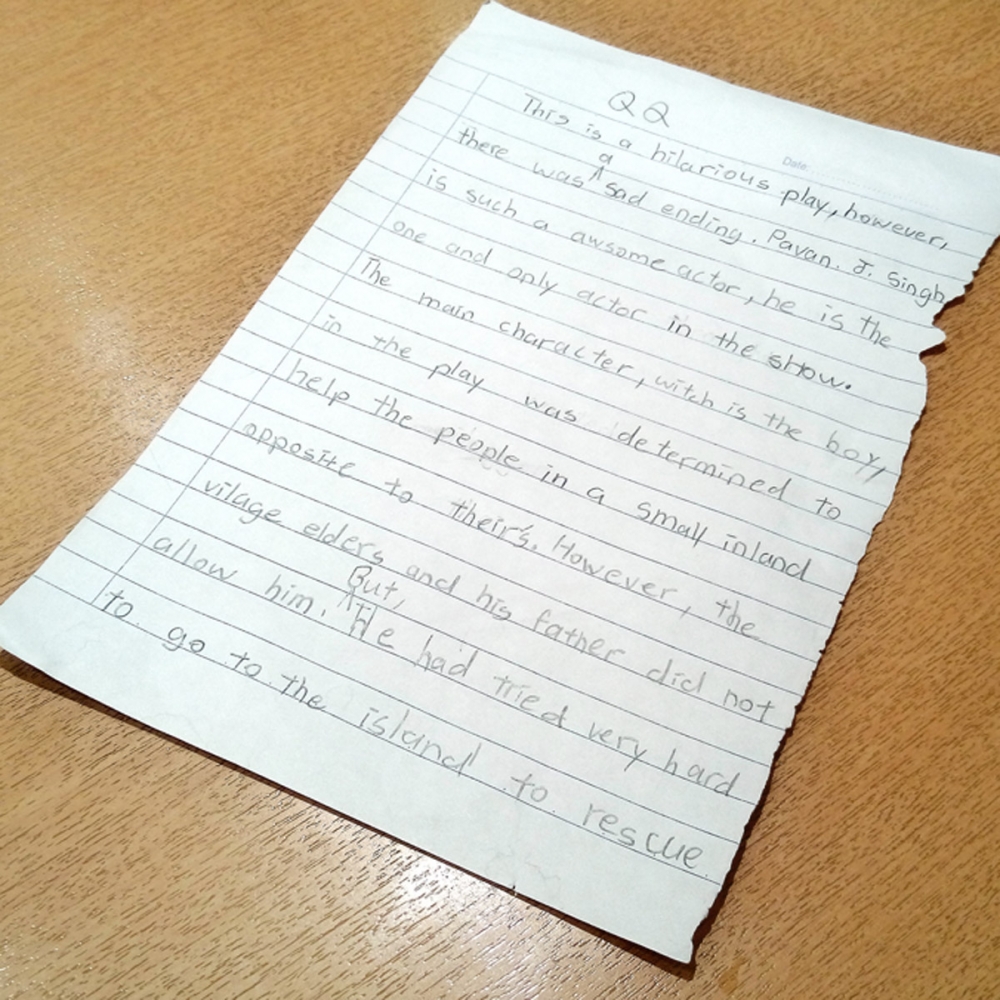 QQ
Date:
This is a hilarious play, however,
there was a sad ending. Pavan. J. Singh
is such a awsome actor, he is the
one and only actor in the show.
The main character, witch is the boy,
in the play was determined to
help the people in a small inland
opposite to their's. However, the
vilage elders and his father did not
allow him. But, He had tried very hard
to go to the island to rescue